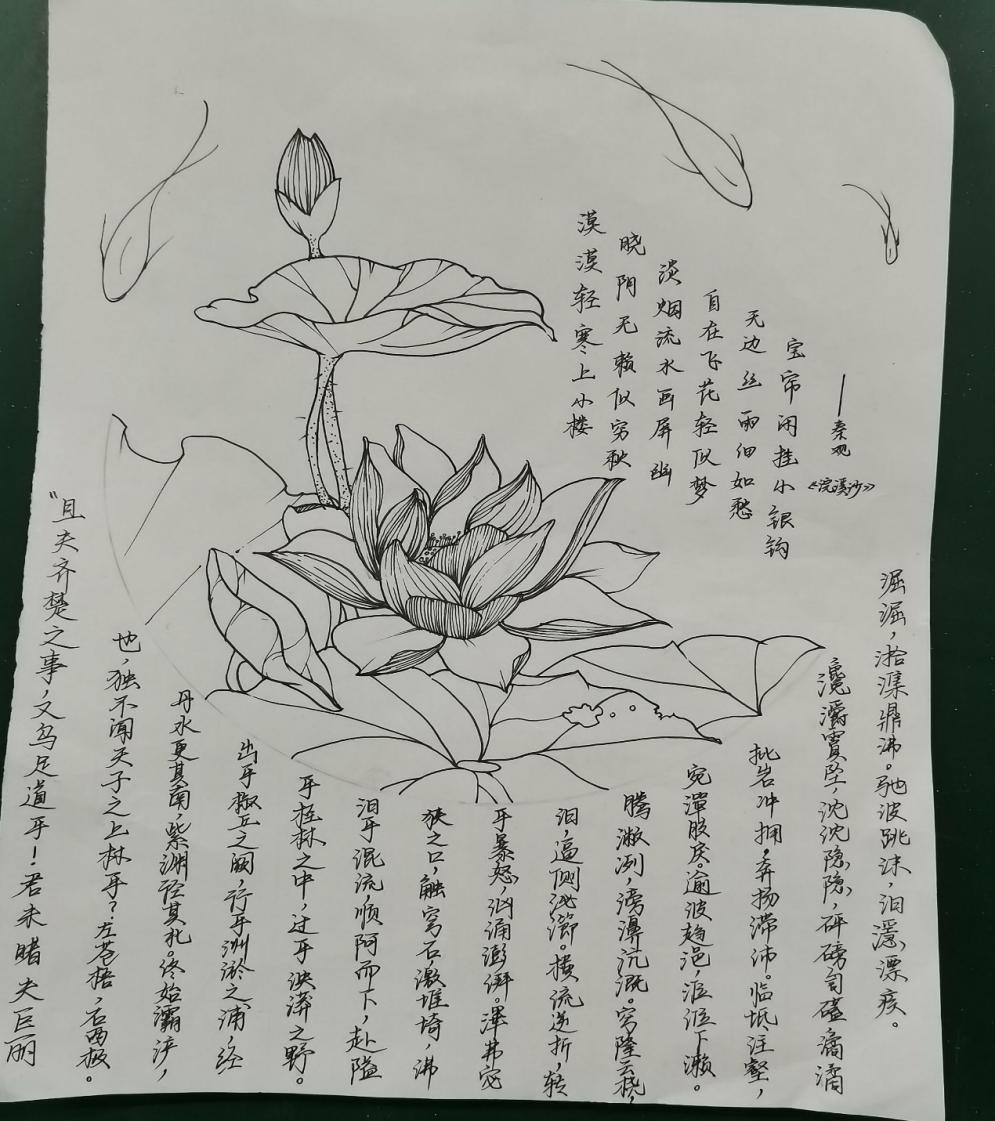 漠漠轻寒上小楼
晓阴无赖似穷秋
淡烟流水画屏幽
自在飞花轻似梦
无边丝雨细如愁
宝帘闲挂小银钩
——秦观
《浣溪沙》
“且夫齐楚之事,又乌足道乎!君未睹夫巨丽
也,独不闻天子之上林乎?左苍梧,右西极。
丹水更其南,紫渊径其北。终始灞浐,
出乎椒丘之阙,行乎洲淤之浦,经
乎桂林之中,过乎泱漭之野。
汩乎混流,顺阿而下,赴隘
狭之口,触穹石,激堆埼,沸
乎暴怒,汹涌澎湃。滭弗宓
汩,逼侧泌瀄。横流逆折,转
腾潎洌,滂濞沆溉。穹隆云桡,
宛潬胶戾。逾波趋浥,涖涖下濑。
批岩冲拥,奔扬滞沛。临坻注壑,
瀺灂霣坠,沈沈隐隐,砰磅訇磕,潏潏
淈淈,湁潗鼎沸。驰波跳沫,汩㶖漂疾。